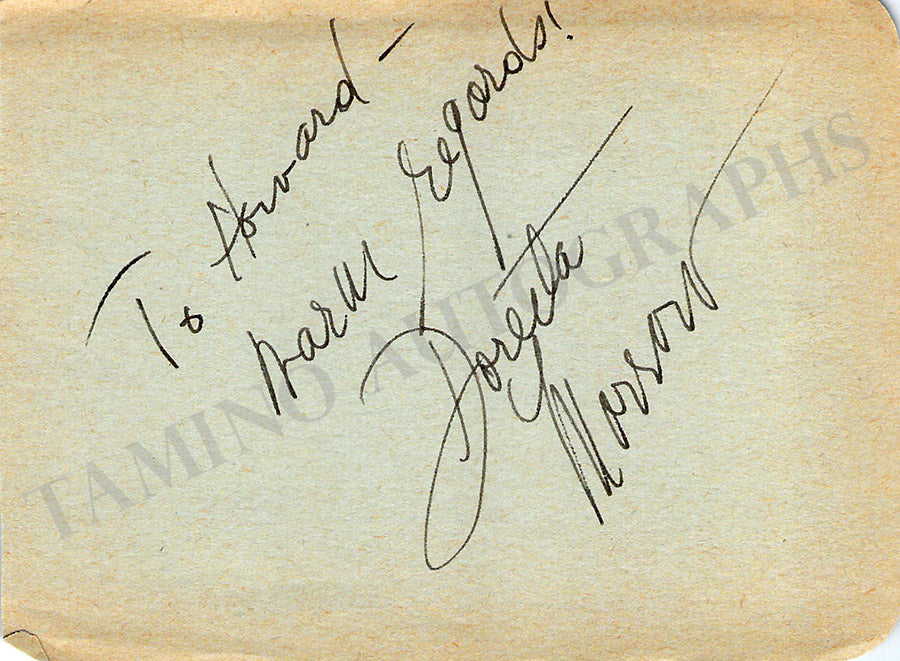 To Howard-
Warm Regards!
Doretta
Morrow
TAMINO AUTOGRAPHS